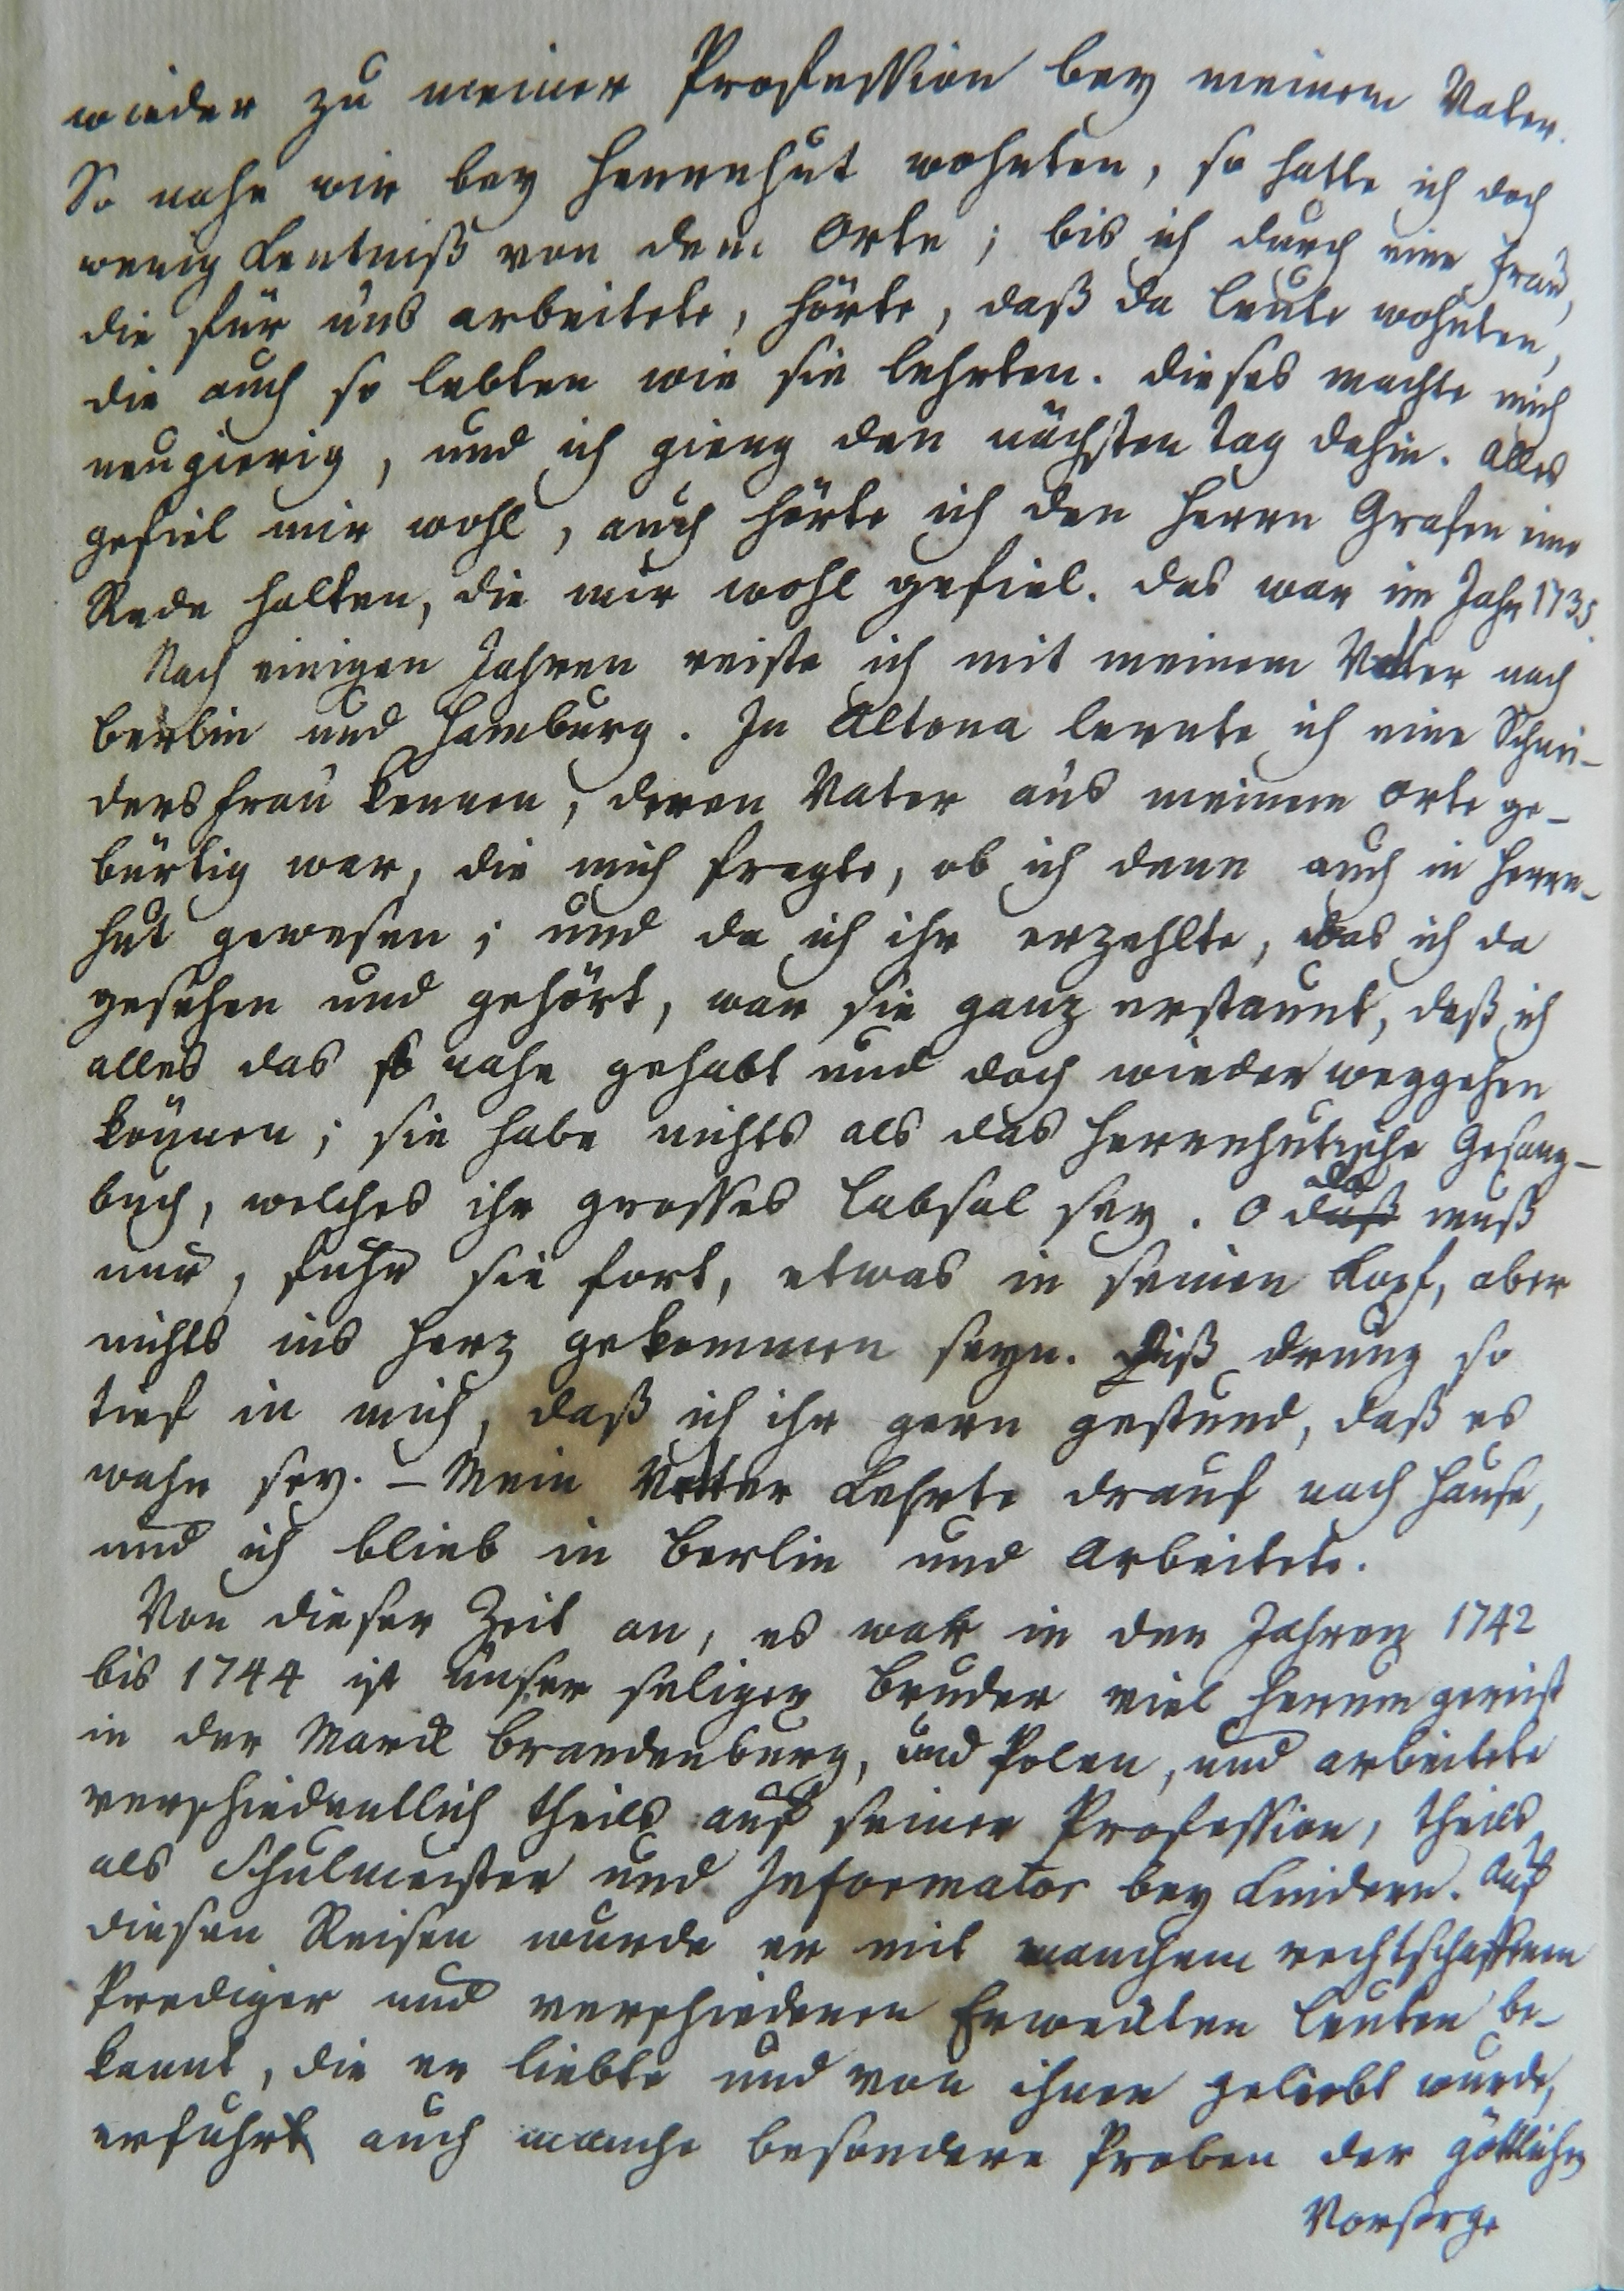 wieder zu meiner Profession bey meinem Vater.
So nahe wir bey Herrnhut wohnten, so hatte ich doch
wenig Kentniß von dem Orte; bis ich durch eine Frau,
die für uns arbeitete, hörte, daß da Leute wohnten,
die auch so lebten wie sie lehrten. Dieses machte mich
neugierig, und ich gieng den nächsten Tag dahin. Alles
gefiel mir wohl, auch hörte ich den Herrn Grafen eine
Rede halten, die mir wohl gefiel. Das war im Jahr 1735.
Nach einigen Jahren reiste ich mit meinem Vetter nach
Berlin und Hamburg. In Altona lernte ich eine Schnei-
dersfrau kennen, deren Vater aus meinem Orte ge-
bürtig war, die mich fragte, ob ich denn auch in Herrn-
hut gewesen; und da ich ihr erzehlte, was ich da
gesehen und gehört, war sie ganz erstaunt, daß ich
alles das so nahe gehabt und doch wieder weggehen
können; sie habe nichts als das Herrnhutische Gesang-
buch, welches ihr grosses Labsal sey. O da daß muß
nur, fuhr sie fort, etwas in seinen Kopf, aber
nichts ins Herz gekommen seyn. Diß drung so
tief in mich, daß ich ihr gern gestund, daß es
wahr sey. – Mein Vetter kehrte drauf nach Hause,
und ich blieb in Berlin und arbeitete.
Von dieser Zeit an, es war in den Jahren 1742
bis 1744 ist unser seliger Bruder viel herumgereist
in der Marck Brandenburg, und Polen, und arbeitete
verschiedentlich theils auf seiner Profession, theils
als Schulmeister und Informator bey Kindern. Auf
diesen Reisen wurde er mit manchem rechtschaffnen
Prediger und verschiedenen Erweckten Leuten be-
kannt, die er liebte und von ihnen geliebt wurde,
erfuhr auch manche besondere Proben der göttlichen
Vorsorge